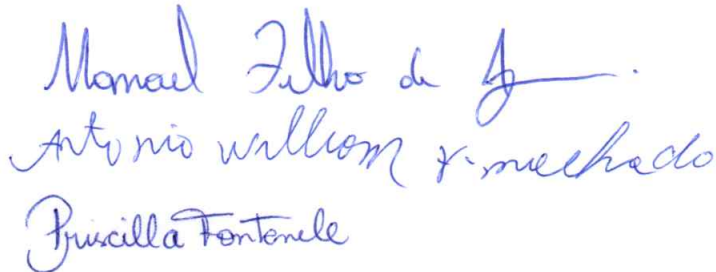 Manoel Filho de
Antonio William F. machado
Priscilla Fontenele